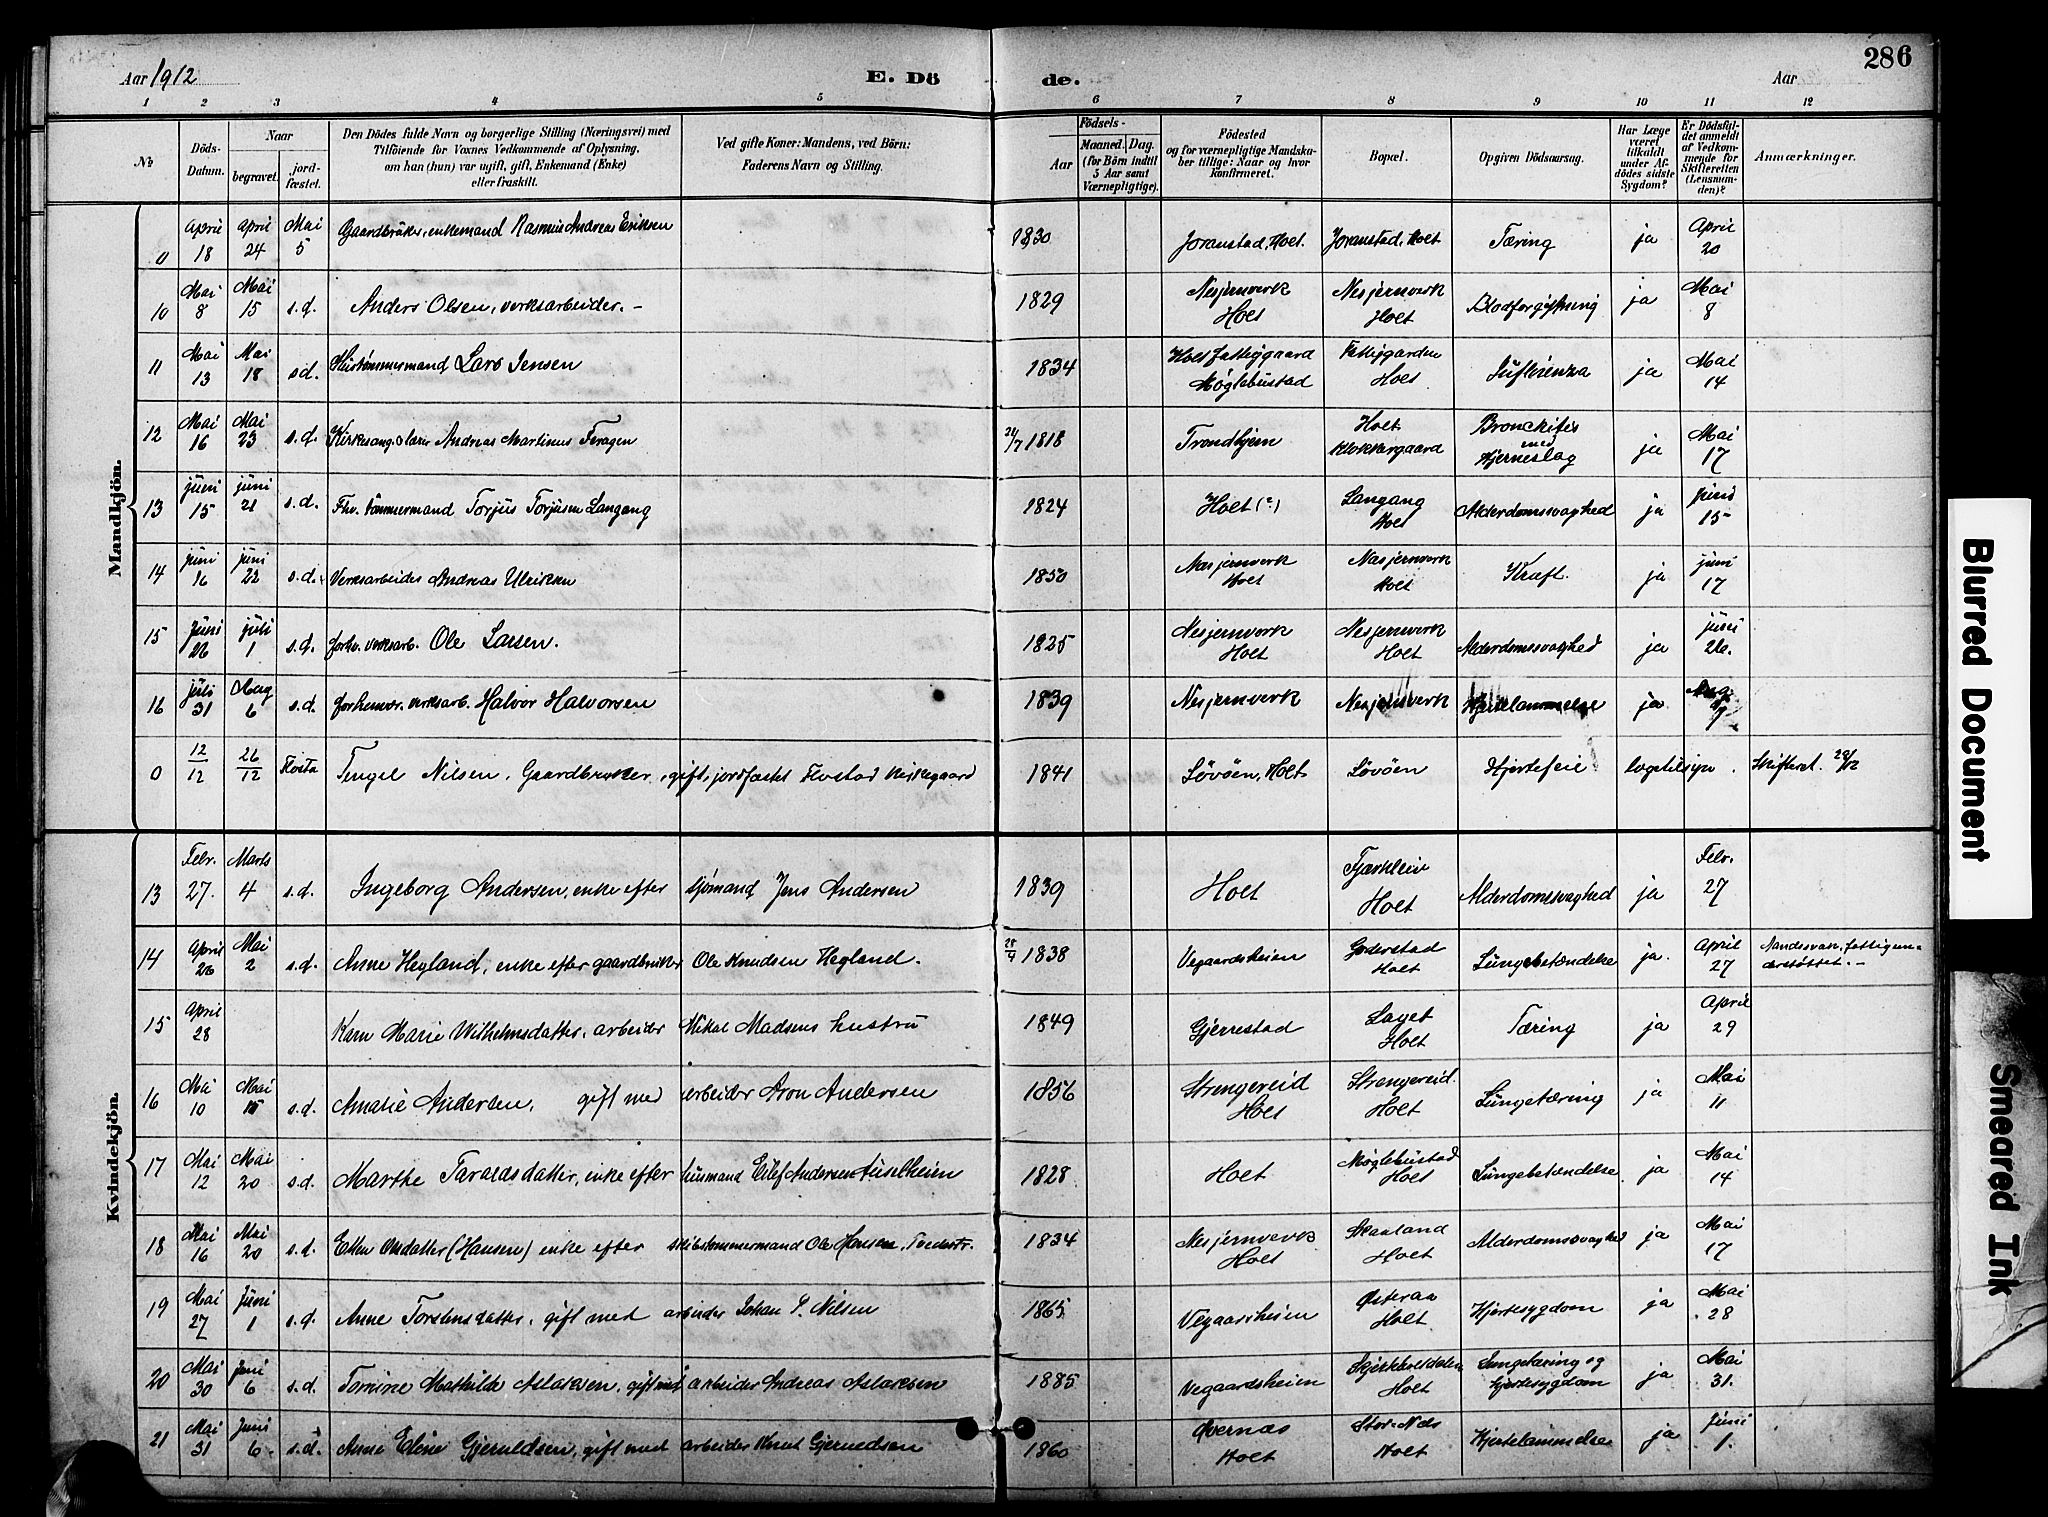 286
Aar 1912 E. Dö de. Aar
1 2 3 4 5 6 7 8 9 10 11 12
No
Döds-Datum.
Naar
begravet.
jordfæstet.
Den Dödes fulde Navn og borgerlige Stilling (Næringsvei) med
Tilföiende for Voxnes Vedkommende af Oplysning,
om han (hun) var ugift, gift, Enkemand (Enke)
eller fraskilt.
Ved gifte Koner: Mandens, ved Börn:
Faderens Navn og Stilling.
Födsels-
Aar
Maaned. Dag.
(for Börn indtil
5 Aar samt
Værnepligtige).
Födested
og for værnepligtige Mandska-
ber tillige: Naar og hvor
konfirmeret.
Bopæl.
Opgiven Dödsaarsag.
Har Læge
været
tilkaldt
under Af-
dödes sidste
Sygdom?
Er Dödsfal-
det anmeldt
af Vedkom-
mende for
Skifteretten
(Lensman-
den)?
Anmærkninger.
Mandkjön.
0 April 18 April 24 Mai 5 Gaardbruker, enkemand Rasmus Andreas Eriksen 1830 Joranstad, Holt. Joranstad, Holt Tæring ja April 20
10 Mai 8 Mai 15 s.d. Anders Olsen, verksarbeider. - 1829 Nesjernverk Holt Nesjernverk Holt Blodforgiftning ja Mai 8
11 Mai 13 Mai 18 sd. Lars Jensen 1834 Holt fattiggaard Møglebustad Fattiggarden Holt Influenza ja Mai 14
12 Mai 16 Mai 23 s.d. Kirkesang. o lærer Andreas Martinus Feragen 21/7 1818 Trondhjem Holt Klokkargaard Bronchites med Hjerneslag ja Mai 17
13 juni 15 juni 21 s.d. Fhv. tømmermand Torjus Torjusen Langang 1824 Holt (?) Langang Holt Alderdomssvaghed ja juni 15
14 juni 16 juni 22 s.d. Verksarbeider Andreas Ulriksen 1850 Næsjernverk Holt Næsjernverk Holt Kræft. ja juni 17
15 Juni 26 juli 1 s.d. forhv. verksarb. Ole Larsen. 1825 Nesjernverk Holt Nesjernverk Holt Alderdomssvaghed ja juni 26.
16 juli 31 Aug 6 s.d. forhenvr. verksarb. Halvor Halvorsen 1839 Nesjernverk Nesjernverk Hjertelammelse ja Aug
0 12/12 26/12 Flosta Tengel Nilsen, Gaardbruker, gift, jordfæstet Flostad Kirkegaard 1841 Løvøen, Holt Løvøen Hjertefeil lægetilsyn. Skifteret. 29/12
Kvindekjön.
13 Febr. 27. Marts 4 s.d. Ingeborg Andersen, enke efter sjømand Jens Andersen 1839 Holt Fjærkleiv Holt Alderdomssvaghed ja Febr. 27
14 April 26 Mai 2 s.d. Anne Hegland, enke efter gaardbruker Ole Knudsen Hegland. 28/4 1838 Vegaardsheien Goderstad Holt Lungebetændelse ja. April 27 Landsvan. fattigun-
derstøttet. -
15 April 28 Karn Marie Wilhelmsdatter, arbeider Mikal Madsens hustru 1849 Gjerrestad Laget Holt Tæring ja April 29
16 Mai 10 Mai 15 s.d. Amalie Andersen, gift med arbeider Aron Andersen 1856 Strengereid Holt Strengereid. Holt Lungetæring ja Mai 11
17 Mai 12 Mai 20 s.d. Marthe Taraldsdatter, enke efter husmand Eilef Andersen Auselheien 1828 Holt Møglebustad Holt Lungebetændelse ja Mai 14
18 Mai 16 Mai 20 s.d. Ellen Olsdatter (Hansen) enke efter skibstømmermand Ole Hansen, Tvedestr. 1834 Nesjernverk Holt Skaaland Holt Alderdomssvaghed ja Mai 17
19 Mai 27 Juni 1 s.d. Anne Torstensdatter, gift med arbeider Johan P. Nilsen 1865 Vegaarsheien Østeraa Holt Hjertesygdom ja Mai 28
20 Mai 30 Juni 6 s.d. Tomine Mathilde Aslaksen, gift med arbeider Andreas Aslaksen 1885 Vegaardsheien Holt Lungetæring og hjertesygdom ja Mai 31.
21 Mai 31 Juni 6. s.d. Anne Eline Gjeruldsen, gift med arbeider Knut Gjeruldsen 1860 Øvernæs Holt Stor-Næs Holt Hjertelammelse ja Juni 1.
Blurred Document
Smeared Ink